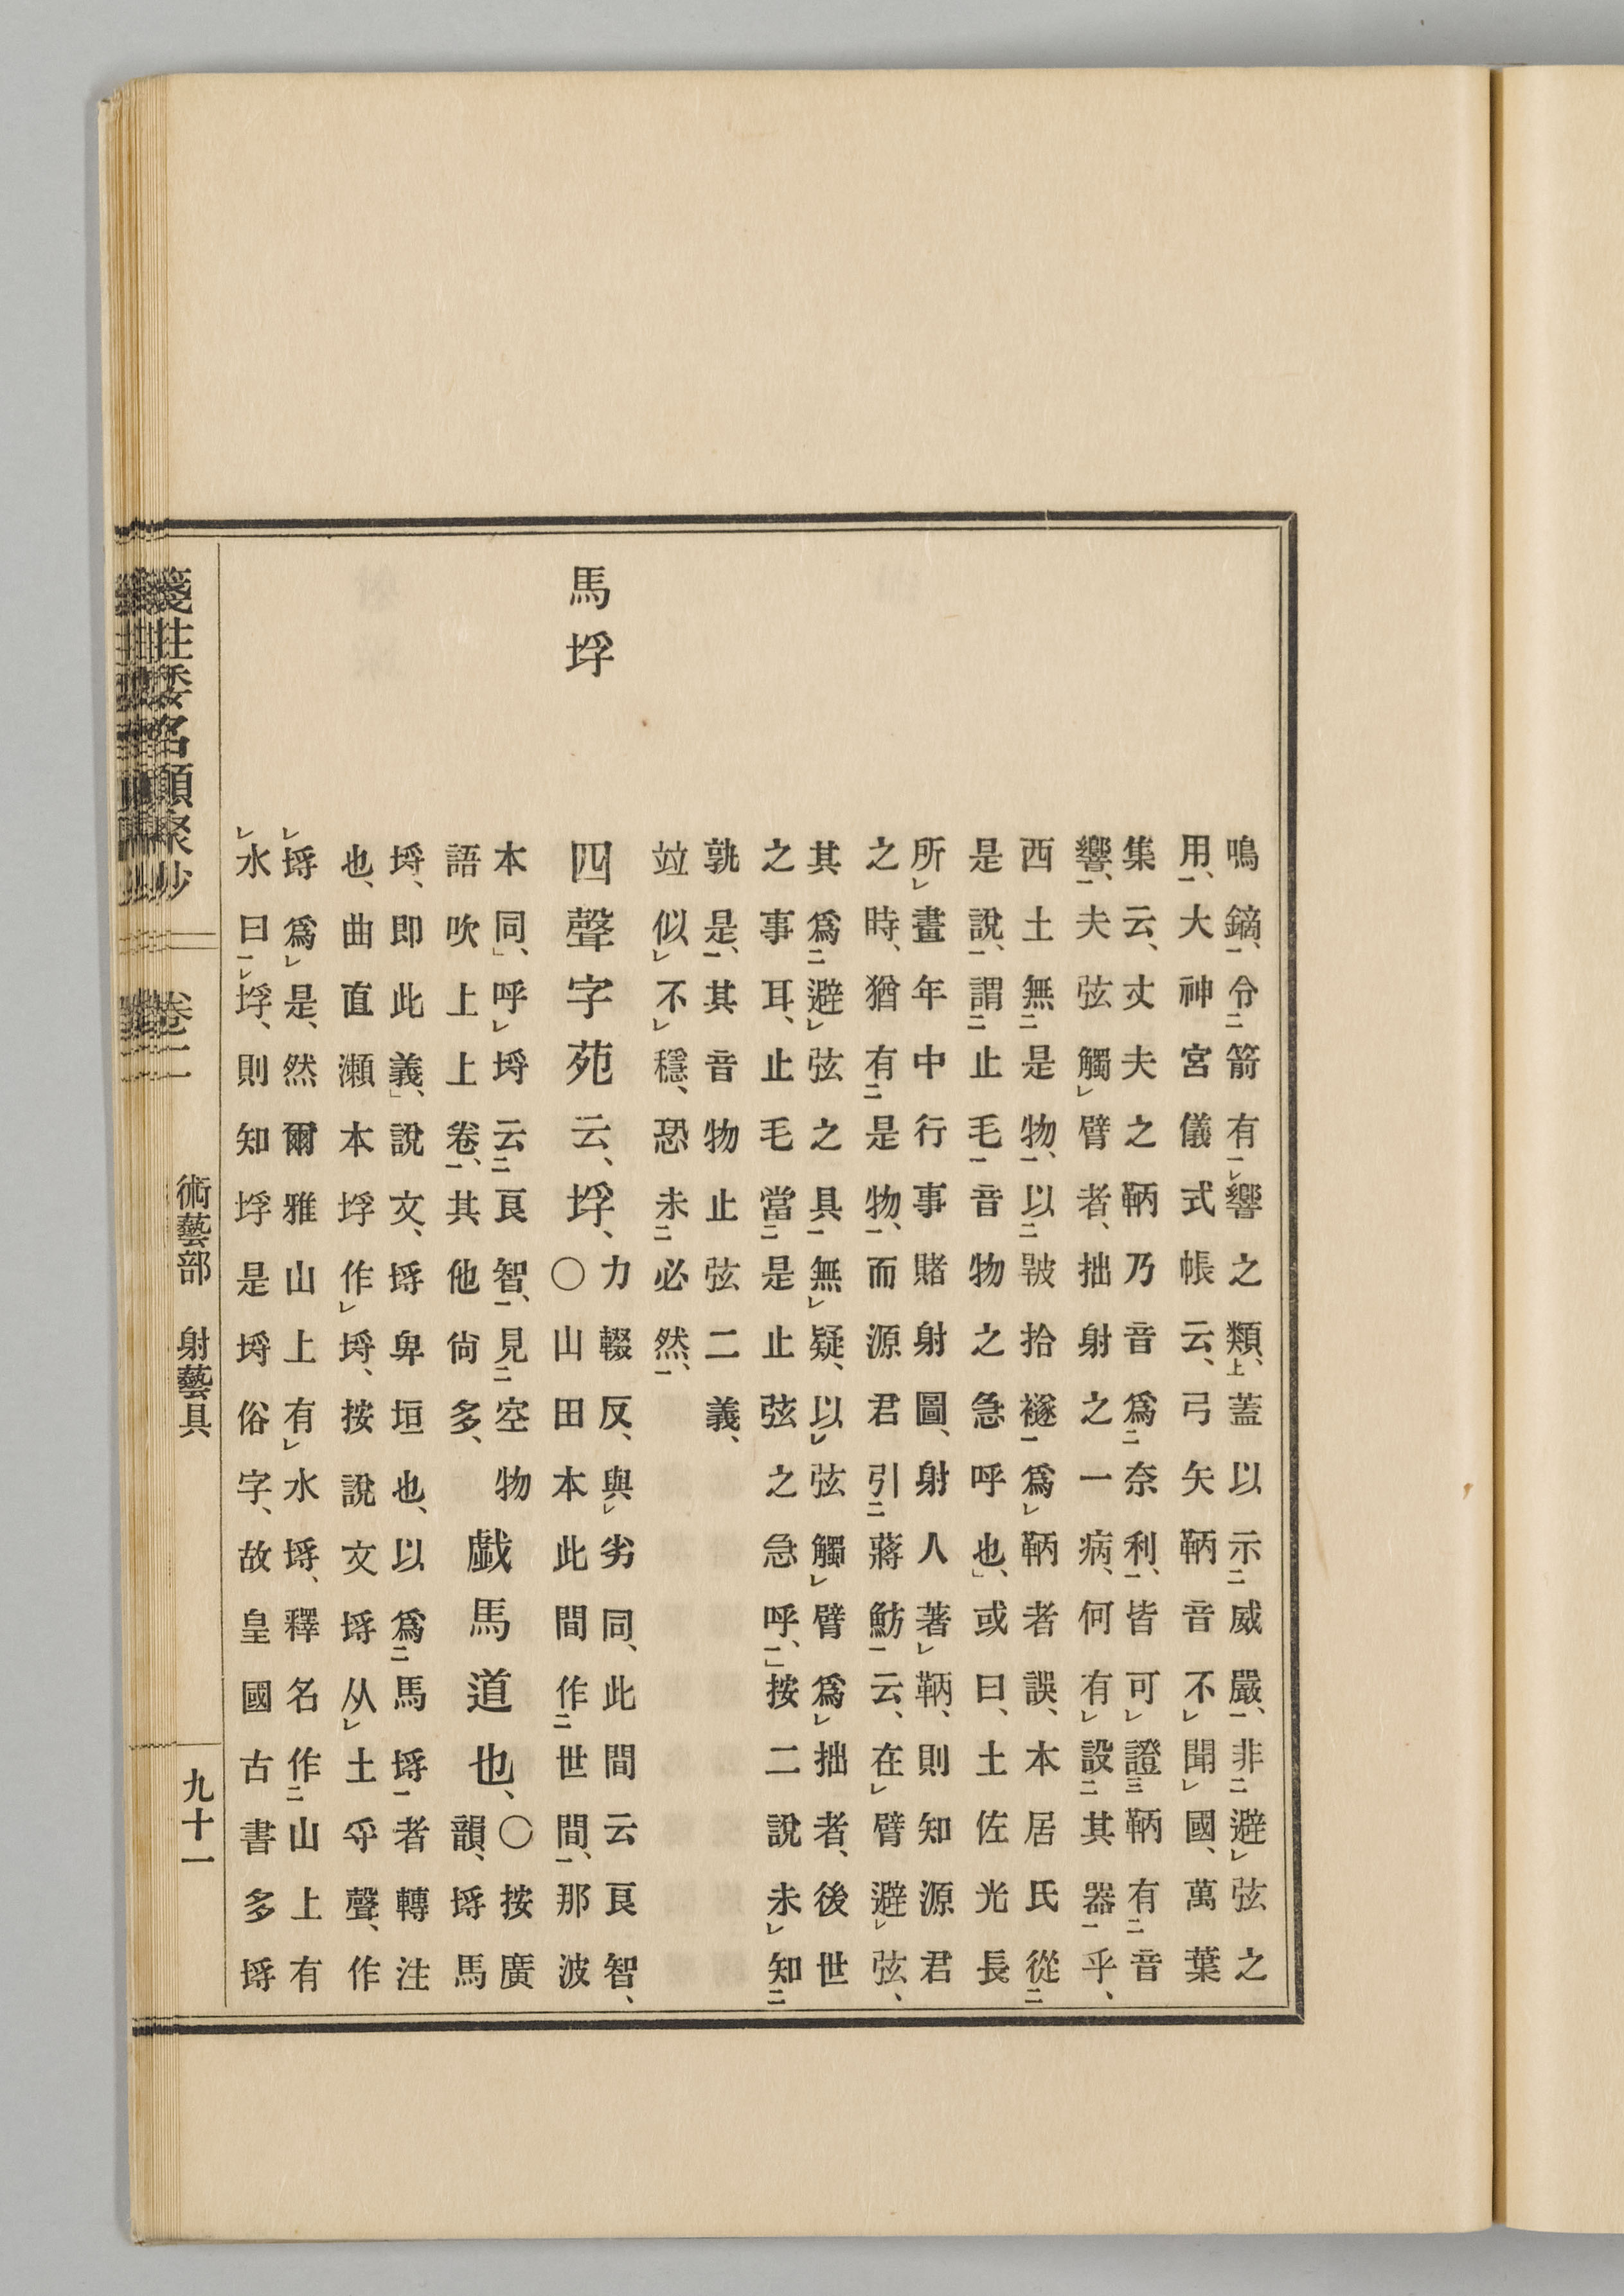 鳴鏑、令箭有響之類、蓋以示威嚴、非避弦之
用、大神宮儀式帳云、弓矢鞆音不聞國、萬葉
集云、丈夫之鞆乃音爲奈利、皆可證鞆有音
響、夫弦觸臂者、拙射之一病、何有設其器乎、
西土無是物、以拾襚爲鞆者誤、本居氏從
是說、謂止毛音物之急呼也」、或曰、土佐光長
所畫年中行事賭射圖、射人著鞆、則知源君
之時、猶有是物、而源君引蔣魴云、在臂避弦、
其爲避弦之具無疑、以弦觸臂爲拙者、後世
之事耳、止毛當是止弦之急呼、」按二說未知
孰是、其音物止弦二義、
竝似不穩、恐未必然、
馬垺
四聲字苑云、垺、
力輟反、與劣同、此間云良智、
○山田本此間作世間、那波
本同、」呼埒云良智、見空物
語吹上上卷、其他尙多、
戯馬道也、
○按廣
韻、埒馬
埒、即此義、」說文、埒卑垣也、以爲馬埒者轉注
也、曲直瀬本垺作埒、按說文埒从土寽聲、作
埒爲是、然爾雅山上有水埒、釋名作山上有
水曰垺、則知垺是埒俗字、故皇國古書多埒
箋注倭名類聚抄 卷二 術藝部 射藝具 九十一